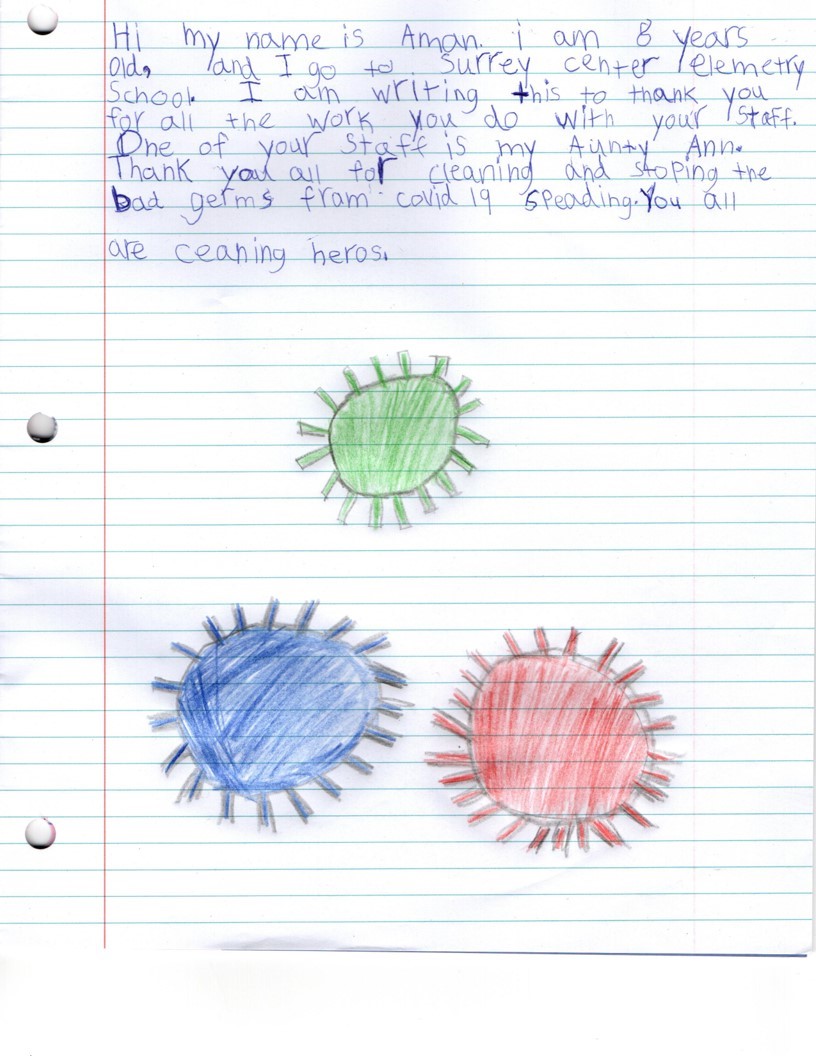 Hi my name is Aman. i am 8 years
old, and I go to Surrey center elemetry
School. I am writing this to thank you
for all the work you do with your Staff.
One of your Staff is my Aunty Ann.
Thank you all for cleaning and stoping the
bad germs fram covid 19 Speading. You all
are ceaning heros.